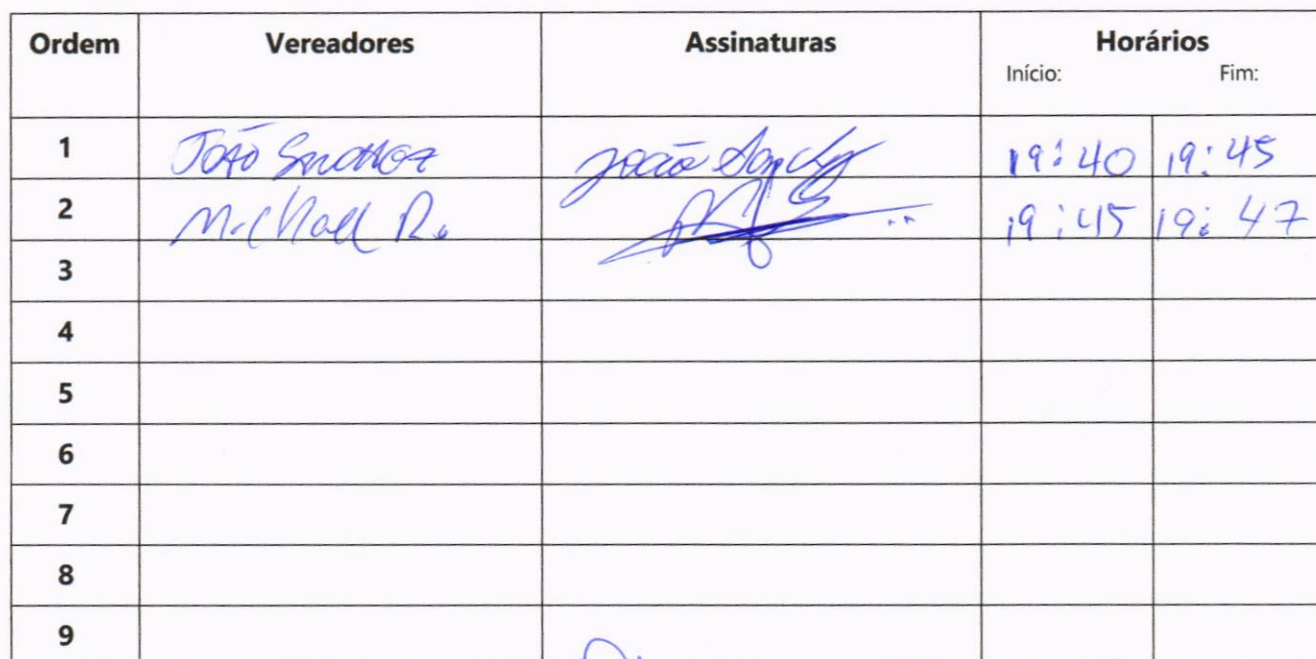 Ordem Vereadores Assinaturas Horários
Início: Fim:
1 João Sanchez João Sanchez 19:40 19:45
2 Michael R. 19:45 19:47
3
4
5
6
7
8
9